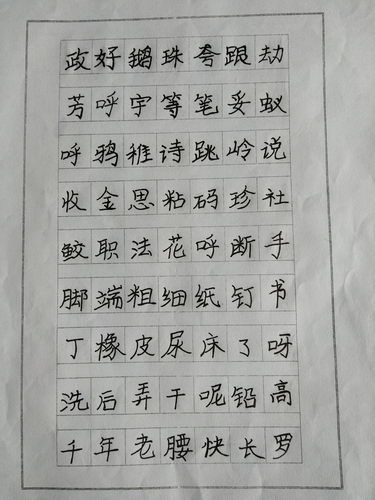 政好鹅珠夸跟劫
芳呼宇等笔妥蚁
呼鸦稚诗跳岭说
收金思粘码珍社
鲛职法花呼断手
脚端粗细纸钉书
丁橡皮尿床了呀
洗后弄干呢铅高
千年老腰快长罗